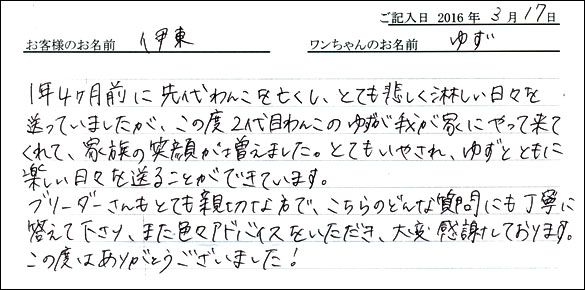 ご記入日 2016年 3月 17日
お客様のお名前 伊東 ワンちゃんのお名前 ゆず
1年4ヶ月前に先代わんこを亡くし、とても悲しく淋しい日々を
送っていましたが、この度2代目わんこのゆずが我が家にやって来て
くれて、家族の笑顔が増えました。とてもいやされ、ゆずとともに
楽しい日々を送ることができています。
ブリーダーさんもとても親切な方で、こちらのどんな質問にも丁寧に
答えて下さり、また色々アドバイスをいただき、大変感謝しております。
この度はありがとうございました！